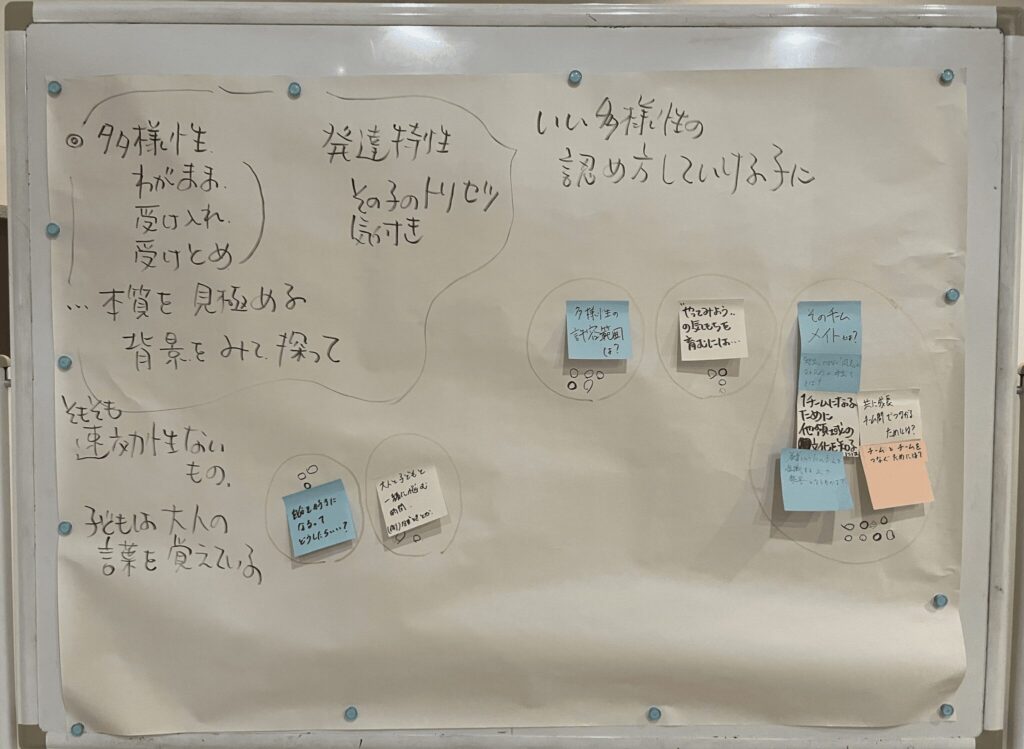 ◎ 多様性
わがまま.
受け入れ.
受けとめ
発達特性
その子のトリセツ
気付き
… 本質を見極める
背景をみて、探って
いい多様性の
認め方していける子に
そもそも
速効性ない
もの.
子どもは大人の
言葉を覚えている
多様性の
許容範囲
は?
やってみよう..
の気もちを
育むには…
そのチーム
メイトとは?
1チームになる
ために
他領域の
文化を知る
共に成長
チーム間でつながる
ためには?
チームとチームを
つなぐためには?
好きに
なるって
どうしたらいい?
大人と子どもと
一緒に悩む
時間..